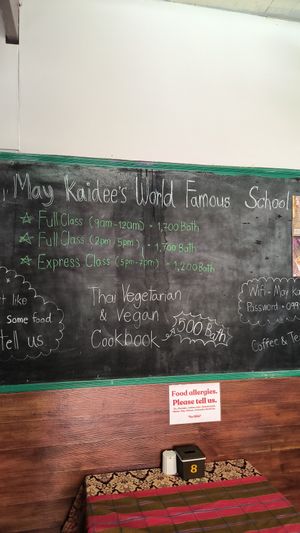 May Kaidee's World Famous School
☆ Full Class (9am-12am) = 1,700 Bath
☆ Full Class (2pm-5pm) = 1,700 Bath
☆ Express Class (5pm-7pm) = 1,200 Bath
like
Some food
tell us
Thai Vegetarian
& Vegan
Cookbook
500 Bath
Wifi = May
Password = 099
Coffee & Te
Food allergies.
Please tell us.
8